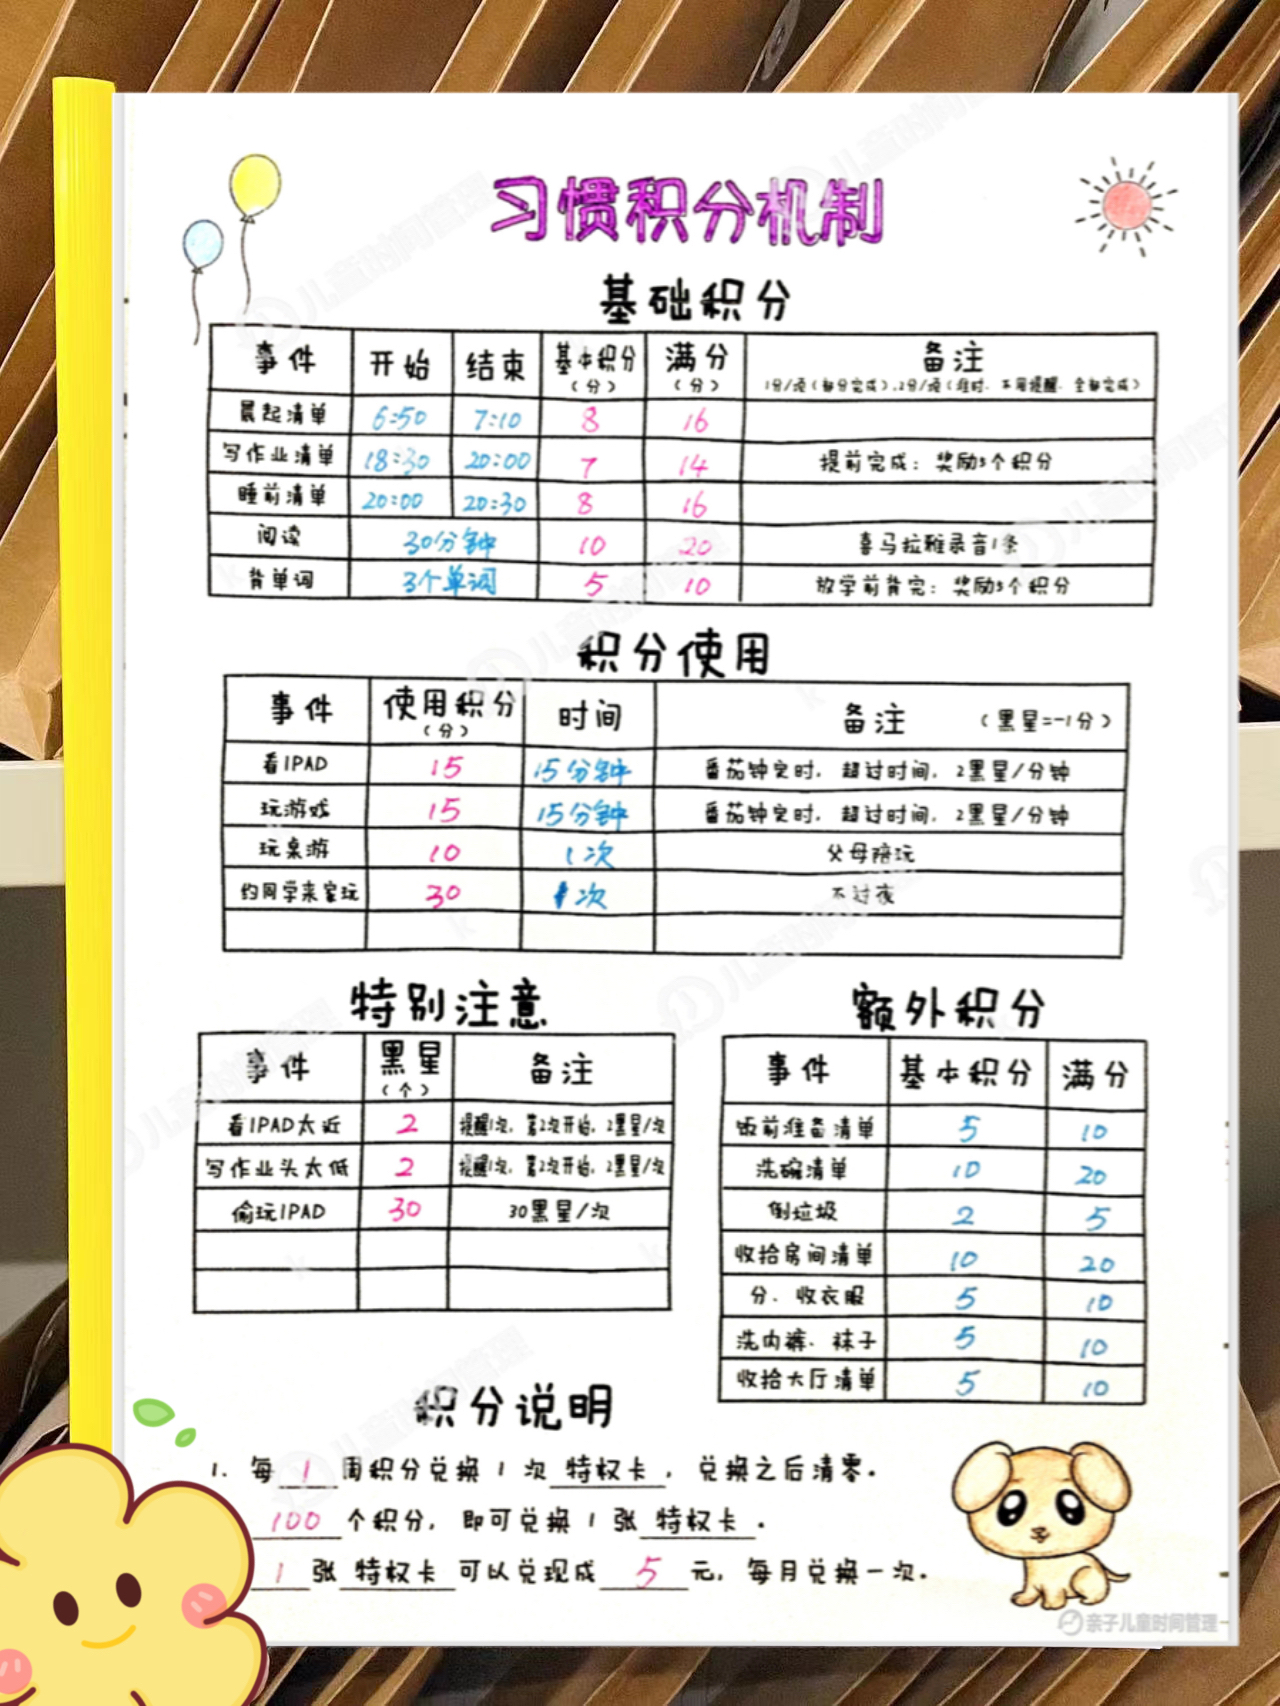 习惯积分机制
基础积分
事件 开始 结束 基本积分(分) 满分(分) 备注
1分/项(部分完成),2分/项(准时、不用提醒、全部完成)
晨起清单 6:50 7:10 8 16
写作业清单 18:30 20:00 7 14 提前完成：奖励5个积分
睡前清单 20:00 20:30 8 16
阅读 30分钟 10 20 喜马拉雅录音1条
背单词 3个单词 5 10 放学前背完：奖励5个积分
积分使用
事件 使用积分(分) 时间 备注 (黑星=-1分)
看IPAD 15 15分钟 番茄钟定时，超过时间，2黑星/分钟
玩游戏 15 15分钟 番茄钟定时，超过时间，2黑星/分钟
玩桌游 10 1次 父母陪玩
约同学来家玩 30 1次 不过夜
特别注意
事件 黑星(个) 备注
看IPAD太近 2 提醒1次，第2次开始，2黑星/次
写作业头太低 2 提醒1次，第2次开始，2黑星/次
偷玩IPAD 30 30黑星/次
额外积分
事件 基本积分 满分
饭前准备清单 5 10
洗碗清单 10 20
倒垃圾 2 5
收拾房间清单 10 20
分、收衣服 5 10
洗内裤、袜子 5 10
收拾大厅清单 5 10
积分说明
1. 每1周积分兑换1次特权卡，兑换之后清零。
100个积分，即可兑换1张特权卡。
1张特权卡可以兑现成5元，每月兑换一次。
亲子儿童时间管理